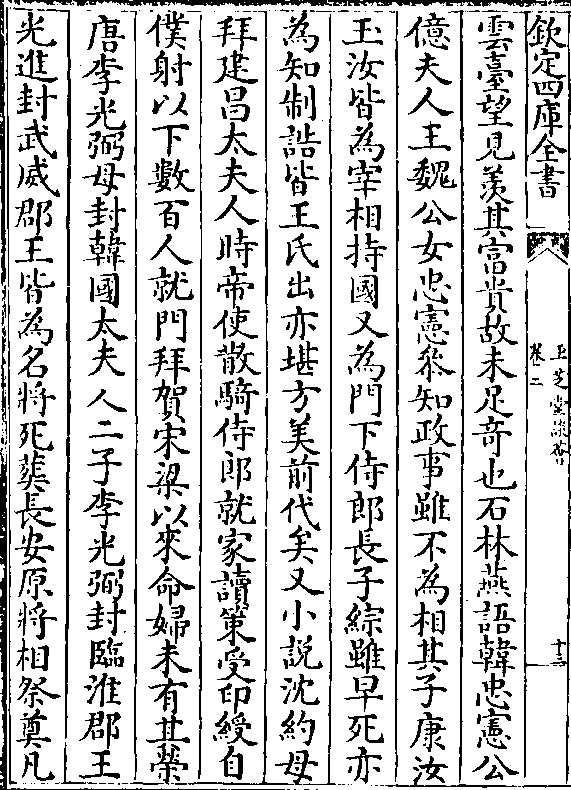 欽定四庫全書
玉芝堂談薈
卷二
十三
雲臺望見羡其富貴故未足竒也石林燕語韓忠憲公
億夫人王魏公女忠憲叅知政事雖不為相其子康汝
玉汝皆為宰相持國又為門下侍郎長子綜雖早死亦
為知制誥皆王氏出亦堪方美前代矣又小說沈約母
拜建昌太夫人時帝使散騎侍郎就家讀策受印綬自
僕射以下數百人就門拜賀宋梁以來命婦未有其榮
唐李光弼母封韓國太夫人二子李光弼封臨淮郡王
光進封武威郡王皆為名將死葬長安原將相祭奠凡